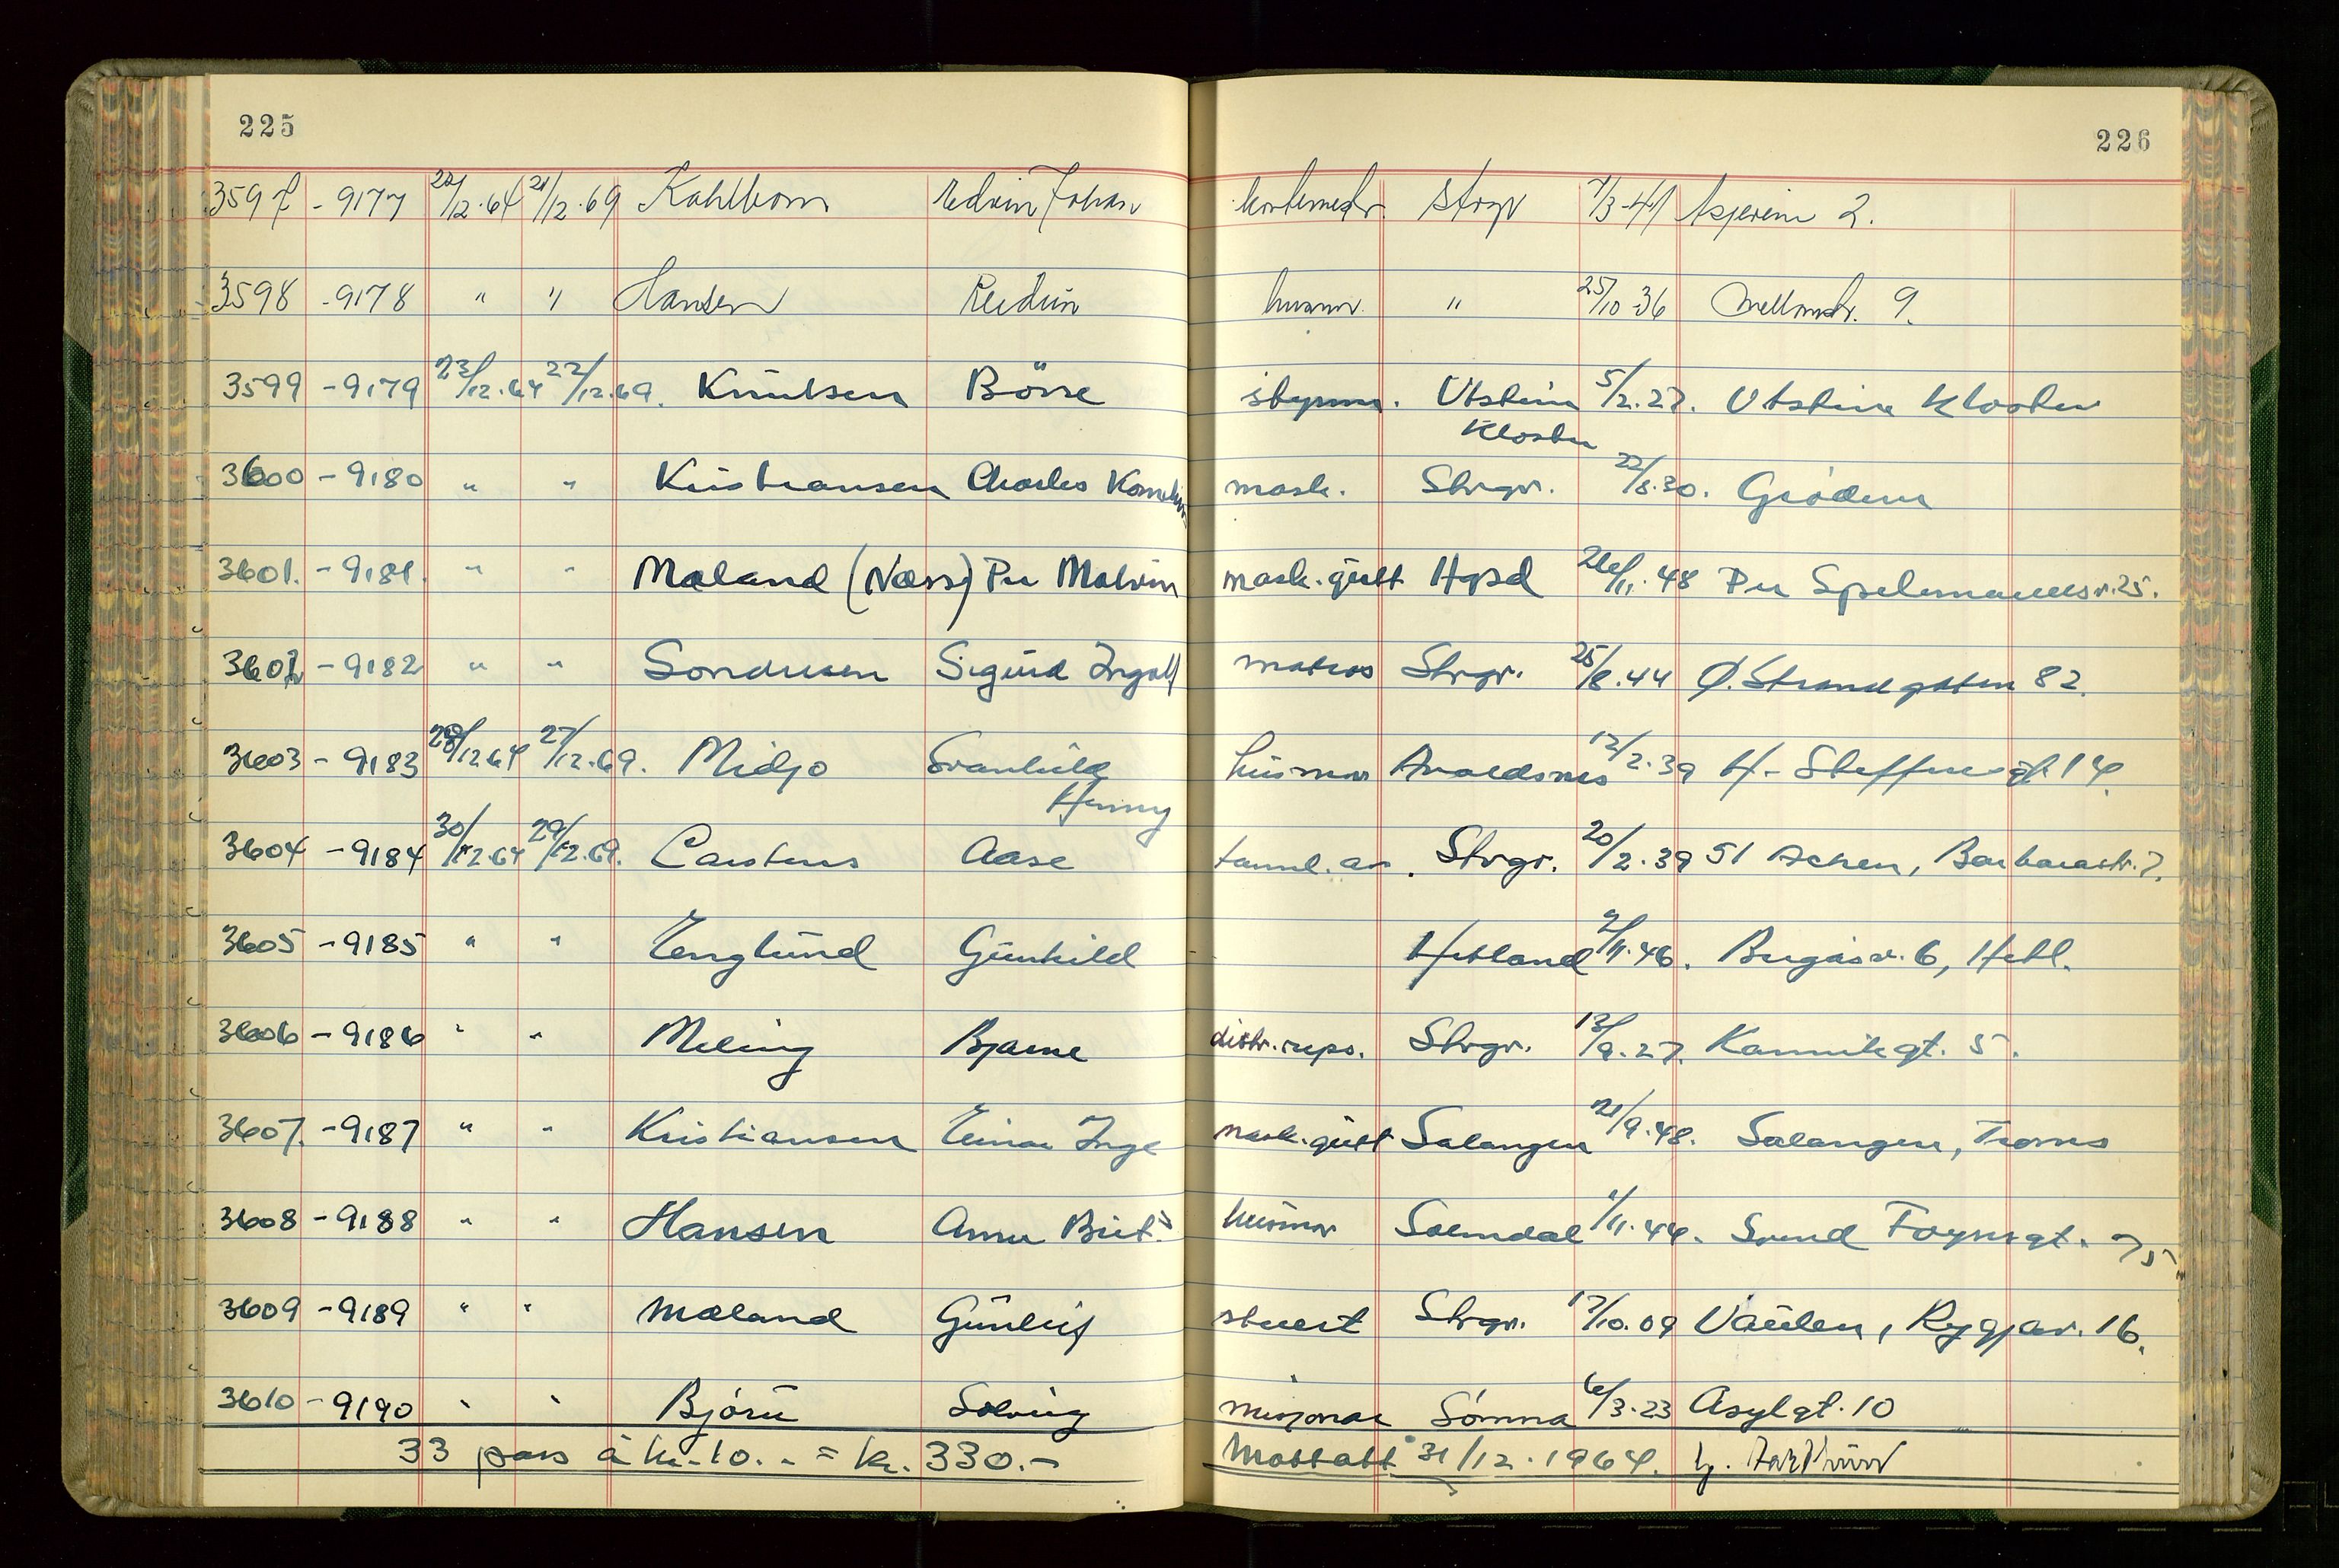 225
226
3597 - 9177 22/12.64 21/12.69 Kahlbom Edvin Johan Strgr 7/3-41 2.
3598 - 9178 " " Hansen Reidun husmr. " 25/10 36 9.
3599 - 9179 23/12.64 22/12.69. Knutsen Börre styrm. Utstein 5/2.27. Utstein Kloster
Kloster
3600 - 9180 " " Kristiansen Charles Kornelius mask. Strgr. 22/8.30. Grödem
3601. - 9181. " " Mæland (Næss) Per Malvin mask.gutt Hgsd 26/11.48 Per Spelemannsv.25.
3602 - 9182 " " Sondresen Sigurd Ingolf matros Strgr. 25/8.44 Ø. Strandgaten 82.
3603 - 9183 28/12.64 27/12.69. Midjo Svanhild husmor Avaldsnes 12/2.39 H. Steffensgt. 14.
Henny
3604 - 9184 30/12.64 29/12.69. Carstens Aase tannl.as. Strgr. 20/2.39 51 Achen, Barbarastr. 7.
3605 - 9185 " " Englund Gunhild Hetland 2/11.46. 6, Hetl.
3606 - 9186 " " Meling Bjarne distr.repr. Strgr. 13/9.27. Kannikgt. 5.
3607. - 9187 " " Kristiansen Einar Inge mask.gutt Salangen 21/9.48. Salangen, Troms
3608 - 9188 " " Hansen Anne Brit husmor Sokndal 1/11.44. Svend Foynsgt. 75
3609 - 9189 " " Mæland Gunleif stuert Strgr. 17/10.09 Vaulen, Ryggjav. 16.
3610 - 9190 " " Björu Solveig misjonær Sömna 6/3.23 Asylgt. 10
33 pass à kr. 10.- = kr. 330.- Mottatt 31/12.1964.